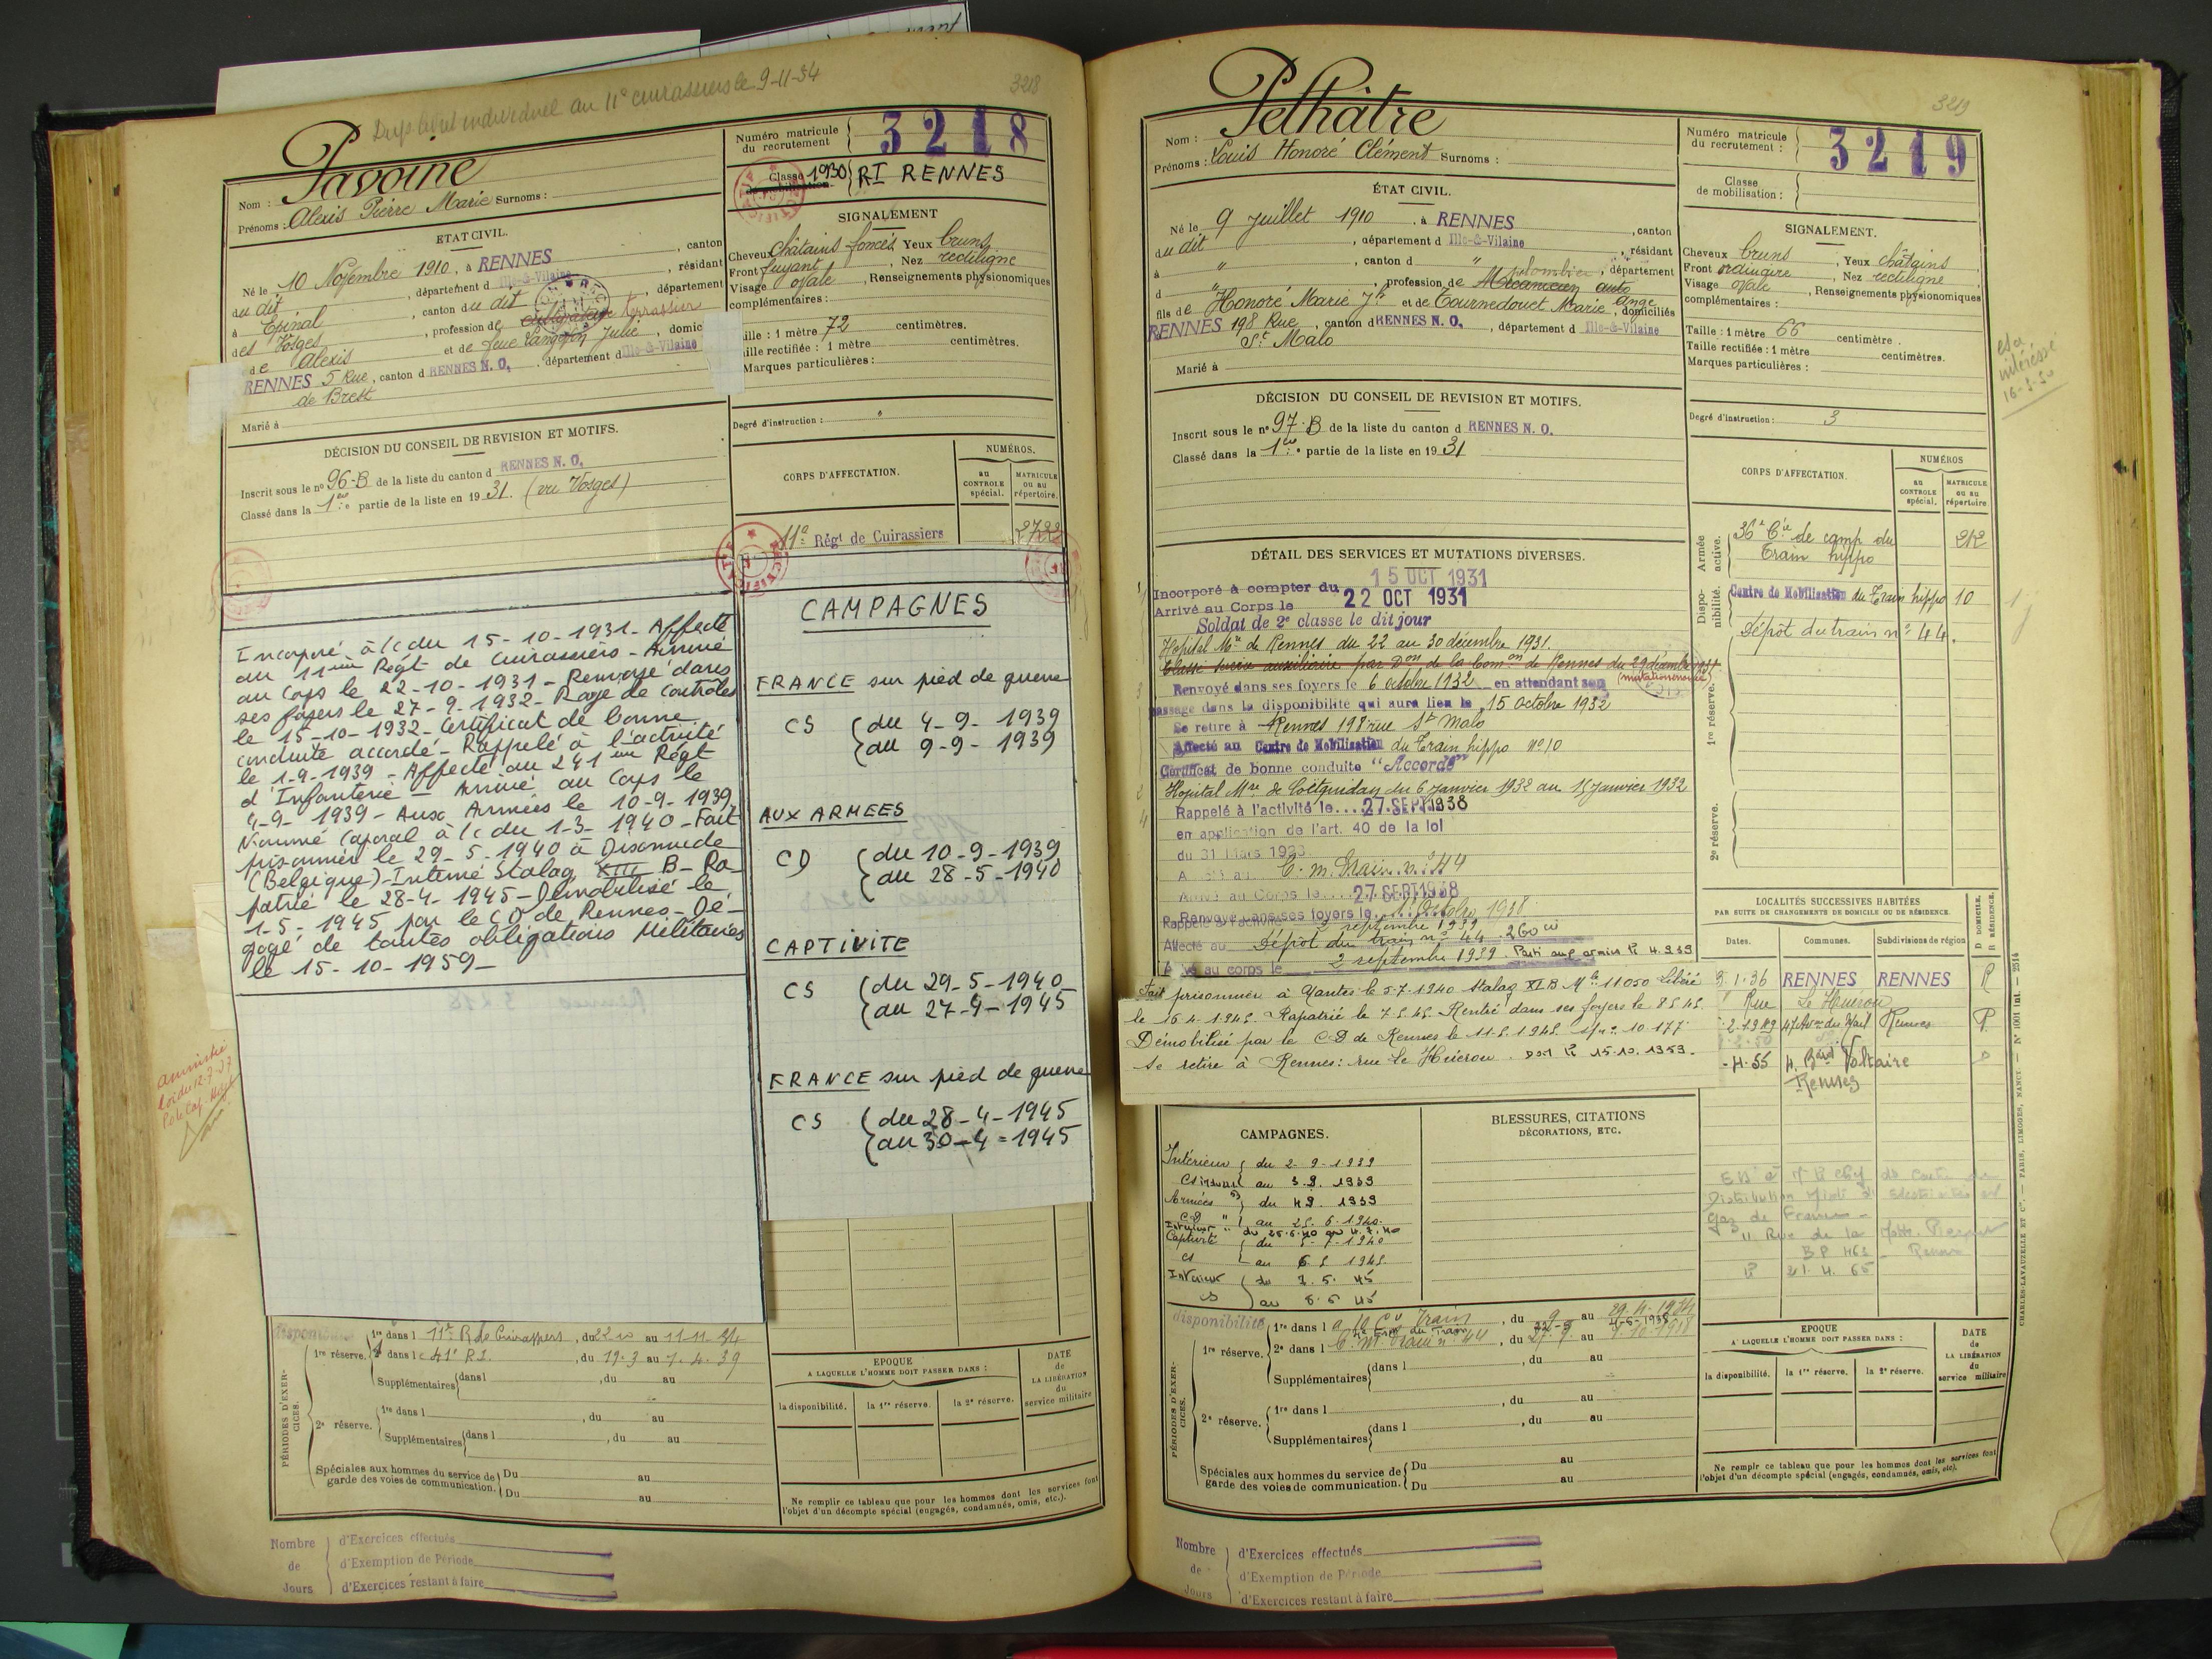 Dup livret individuel au 11e cuirassiers le 9-11-34
3218
Pavoine
Nom :
Prénoms : Alexis Pierre Marie Surnoms :
Numéro matricule
du recrutement
3218
Classe 1930
de mobilisation
RI RENNES
ETAT CIVIL.
Né le 10 Novembre 1910, à RENNES, canton
du dit, département d Ille-&-Vilaine, résidant
à Epinal, canton du dit, département
des Vosges, profession de cultivateur terrassier
de Alexis et de feue Langeron Julie, domic
RENNES 5 Rue, canton d RENNES N. O., département d Ille-&-Vilaine
de Brest
Marié à
SIGNALEMENT
Cheveux châtains foncés Yeux bruns
Front fuyant, Nez rectiligne
Visage ovale, Renseignements physionomiques
complémentaires :
aille : 1 mètre 72 centimètres.
aille rectifiée : 1 mètre centimètres.
Marques particulières :
DÉCISION DU CONSEIL DE REVISION ET MOTIFS.
Inscrit sous le n° 96-B de la liste du canton d RENNES N. O.
Classé dans la 1ère partie de la liste en 1931. (vu Vosges)
Degré d'instruction :
CORPS D'AFFECTATION.
NUMÉROS.
au
CONTROLE
spécial.
MATRICULE
ou au
répertoire.
11e Régt de Cuirassiers
2722
Incorporé à/c du 15-10-1931- Affecté
au 11ème Régt de Cuirassiers - Arrivé
au Corps le 22-10-1931 - Renvoyé dans
ses foyers le 27-9-1932 - Rayé de contrôles
le 15-10-1932 - Certificat de bonne
conduite accordé - Rappelé à l'activité
le 1-9-1939 - Affecté au 241ème Régt
d'Infanterie - Arrivé au Corps le
4-9-1939 - Aux Armées le 10-9-1939
Nommé Caporal à/c du 1-3-1940 - Fait
prisonnier le 29-5-1940 à Dixmude
(Belgique) - Interné Stalag XIII B - Ra-
patrié le 28-4-1945 - Démobilisé le
1-5-1945 par le CD de Rennes - Dé-
gagé de toutes obligations Militaires
le 15-10-1959 -
CAMPAGNES
FRANCE sur pied de guerre
CS (du 4-9-1939
(au 9-9-1939
AUX ARMEES
CD (du 10-9-1939
(au 28-5-1940
CAPTIVITE
CS (du 29-5-1940
(au 27-4-1945
FRANCE sur pied de guerre
CS (du 28-4-1945
(au 30-4-1945
amnistié
loi du 12-7-37
disponibilité
PÉRIODES D'EXERCICES.
1re réserve.
1re dans l 11e R de Cuirassiers, du 22 10 au 11 11 34
2e dans le 41e R.I., du 19.3 au 7.4.39
Supplémentaires dans l , du au
2e réserve.
1re dans l , du au
Supplémentaires dans l , du au
Spéciales aux hommes du service de
garde des voies de communication.
Du au
Du au
EPOQUE
A LAQUELLE L'HOMME DOIT PASSER DANS :
la disponibilité.
la 1re réserve.
la 2e réserve.
DATE
de
LA LIBÉRATION
du
service militaire
Ne remplir ce tableau que pour les hommes dont les services font
l'objet d'un décompte spécial (engagés, condamnés, omis, etc.).
Nombre
de
Jours
d'Exercices effectués
d'Exemption de Période
d'Exercices restant à faire
3219
Pethâtre
Nom :
Prénoms : Louis Honoré Clément Surnoms :
Numéro matricule
du recrutement :
3219
Classe
de mobilisation :
ÉTAT CIVIL.
Né le 9 Juillet 1910, à RENNES, canton
du dit, département d Ille-&-Vilaine, résidant
à ", canton d ", département
d ", profession de Mécanicien auto plombier
fils de Honoré Marie Jh et de Tournedouet Marie Ange, domiciliés
RENNES 198 Rue, canton d RENNES N. O., département d Ille-&-Vilaine
St Malo
Marié à
SIGNALEMENT.
Cheveux bruns, Yeux châtains
Front ordinaire, Nez rectiligne
Visage ovale, Renseignements physionomiques
complémentaires :
Taille : 1 mètre 66 centimètre.
Taille rectifiée : 1 mètre centimètres.
Marques particulières :
intéressé
16-5-50
DÉCISION DU CONSEIL DE REVISION ET MOTIFS.
Inscrit sous le n° 97-B de la liste du canton d RENNES N. O.
Classé dans la 1ère partie de la liste en 1931
Degré d'instruction : 3
CORPS D'AFFECTATION.
NUMÉROS
au
CONTROLE
spécial.
MATRICULE
ou au
répertoire
Armée active.
36e Cie de camp du
Train hippo
212
Disponibilité.
Centre de Mobilisation du Train hippo 10
Dépôt du train n° 44.
1re réserve.
2e réserve.
DÉTAIL DES SERVICES ET MUTATIONS DIVERSES.
Incorporé à compter du 15 OCT 1931
Arrivé au Corps le 22 OCT 1931
Soldat de 2e classe le dit jour
Hopital Mre de Rennes du 22 au 30 décembre 1931.
Classé service auxiliaire par Don de la Comon de Rennes du 29 décembre 1931
Renvoyé dans ses foyers le 6 octobre 1932 en attendant son
passage dans la disponibilité qui aura lieu le 15 octobre 1932
Se retire à Rennes 198 rue St Malo
Affecté au Centre de Mobilisation du Train hippo N°10
Certificat de bonne conduite "Accordé"
Hopital Mre de Coëtquidan du 6 janvier 1932 au 15 janvier 1932
Rappelé à l'activité le 27 SEPT 1938
en application de l'art. 40 de la loi
du 31 Mars 1928
C. m. Train n° 44
Arrivé au Corps le 27 SEPT 1938
Renvoyé dans ses foyers le Octobre 1938
Rappelé à l'activité 2 septembre 1939
Affecté au Dépôt du train n° 44 260
au corps le 2 septembre 1939. Parti aux armées le 4.9.39
Fait prisonnier à Nantes le 5.7.1940 Stalag XI B Mle 11050 Libéré
le 16.4.1945. Rapatrié le 7.5.45. Rentré dans ses foyers le 8.5.45.
Démobilisé par le C.D de Rennes le 11.5.1945 10.177
Se retire à Rennes : rue Le Huérou. le 15.10.1959.
LOCALITÉS SUCCESSIVES HABITÉES
PAR SUITE DE CHANGEMENTS DE DOMICILE OU DE RÉSIDENCE.
Dates.
Communes.
Subdivisions de région
D DOMICILE.
R RÉSIDENCE.
3.1.36 RENNES RENNES R
Rue Le Huérou
47 Ave du Mail Rennes
4.55 4. Bard Voltaire
Rennes
gaz de France
BP 461
21.4.65
CAMPAGNES.
Intérieur du 2.9.1939
au 3.9.1939
Armées du 4.9.1939
C.D au 25.6.1940.
Intérieur du 26.6.40 au 4.7.40
Captivité du 5.7.1940
CS au 6.5.1945.
Intérieur du 7.5.45
CS au 8.5.45
BLESSURES, CITATIONS
DÉCORATIONS, ETC.
disponibilité
PÉRIODES D'EXERCICES.
1re réserve.
1re dans l Train, du 9 au 29.4.1934
2e dans l C. M. Train n° 44, du 27.9. au
Supplémentaires dans l , du au
2e réserve.
1re dans l , du au
Supplémentaires dans l , du au
Spéciales aux hommes du service de
garde des voies de communication.
Du au
Du au
EPOQUE
A LAQUELLE L'HOMME DOIT PASSER DANS :
la disponibilité.
la 1re réserve.
la 2e réserve.
DATE
de
LA LIBÉRATION
du
service militaire
Ne remplir ce tableau que pour les hommes dont les services font
l'objet d'un décompte spécial (engagés, condamnés, omis, etc).
CHARLES-LAVAUZELLE ET Cie. — PARIS, LIMOGES, NANCY — N° 1001 Int. — 2514
Nombre
de
Jours
d'Exercices effectués
d'Exemption de Période
d'Exercices restant à faire